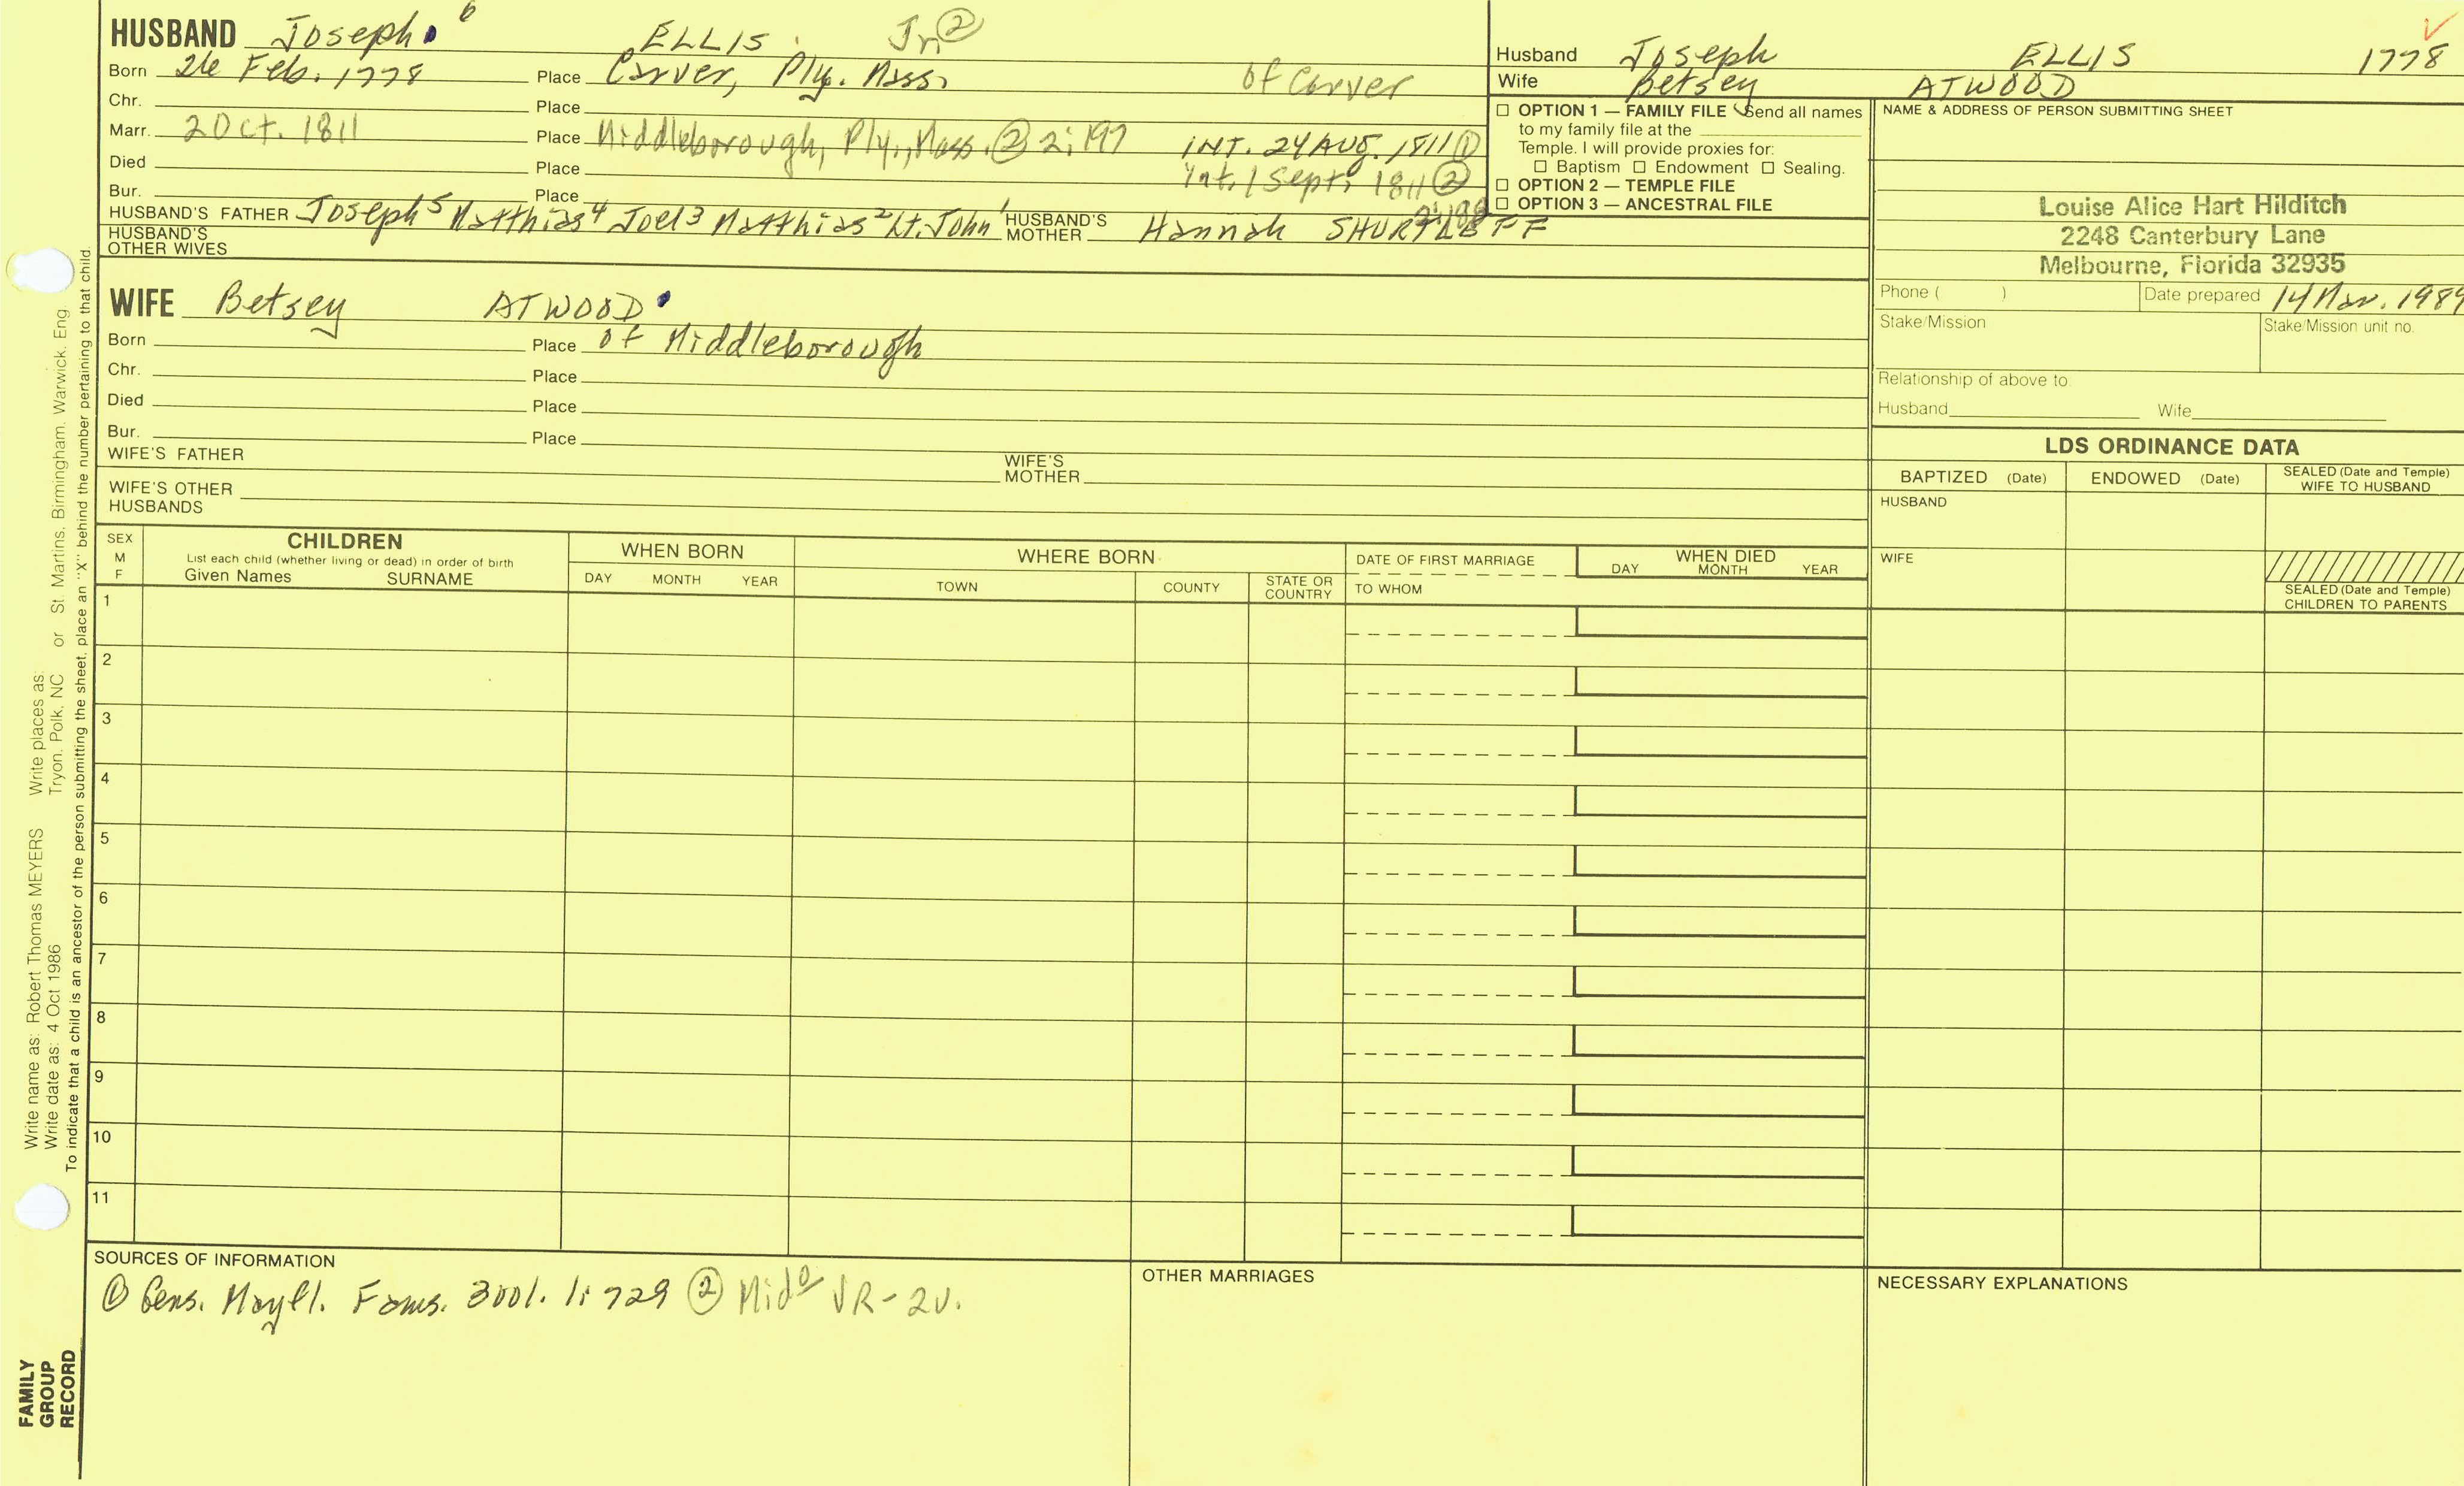 HUSBAND Joseph 6 ELLIS Jr. ②
Born 26 Feb. 1778 Place Carver, Ply. Mass. of Carver
Chr. Place
Marr. 2 Oct. 1811 Place Middleborough, Ply., Mass. ② 2:197 INT. 24 AUG. 1811 ①
Died Place Int. 1 Sept. 1811 ②
Bur. Place 2:198
HUSBAND'S FATHER Joseph 5 Matthias 4 Joel 3 Matthias 2 Lt. John 1 HUSBAND'S MOTHER Hannah SHURTLEFF
HUSBAND'S OTHER WIVES
WIFE Betsey ATWOOD
Born Place of Middleborough
Chr. Place
Died Place
Bur. Place
WIFE'S FATHER WIFE'S MOTHER
WIFE'S OTHER HUSBANDS
Husband Joseph ELLIS 1778
Wife Betsey ATWOOD
☐ OPTION 1 — FAMILY FILE Send all names
to my family file at the
Temple. I will provide proxies for:
☐ Baptism ☐ Endowment ☐ Sealing.
☐ OPTION 2 — TEMPLE FILE
☐ OPTION 3 — ANCESTRAL FILE
NAME & ADDRESS OF PERSON SUBMITTING SHEET
Louise Alice Hart Hilditch
2248 Canterbury Lane
Melbourne, Florida 32935
Phone ( ) Date prepared 14 Mar. 1989
Stake/Mission Stake/Mission unit no.
Relationship of above to
Husband Wife
LDS ORDINANCE DATA
BAPTIZED (Date) ENDOWED (Date) SEALED (Date and Temple) WIFE TO HUSBAND
HUSBAND
WIFE
SEALED (Date and Temple)
CHILDREN TO PARENTS
SEX M F CHILDREN WHEN BORN WHERE BORN DATE OF FIRST MARRIAGE WHEN DIED
List each child (whether living or dead) in order of birth
Given Names SURNAME DAY MONTH YEAR TOWN COUNTY STATE OR COUNTRY TO WHOM DAY MONTH YEAR
1
2
3
4
5
6
7
8
9
10
11
SOURCES OF INFORMATION
① Gens. Mayfl. Fams. 3vol. 1:729 ② Mido VR-2v.
OTHER MARRIAGES
NECESSARY EXPLANATIONS
Write name as: Robert Thomas MEYERS Write places as:
Write date as: 4 Oct 1986 Tryon. Polk. NC or St. Martins. Birmingham. Warwick. Eng.
To indicate that a child is an ancestor of the person submitting the sheet. place an "X" behind the number pertaining to that child.
FAMILY
GROUP
RECORD